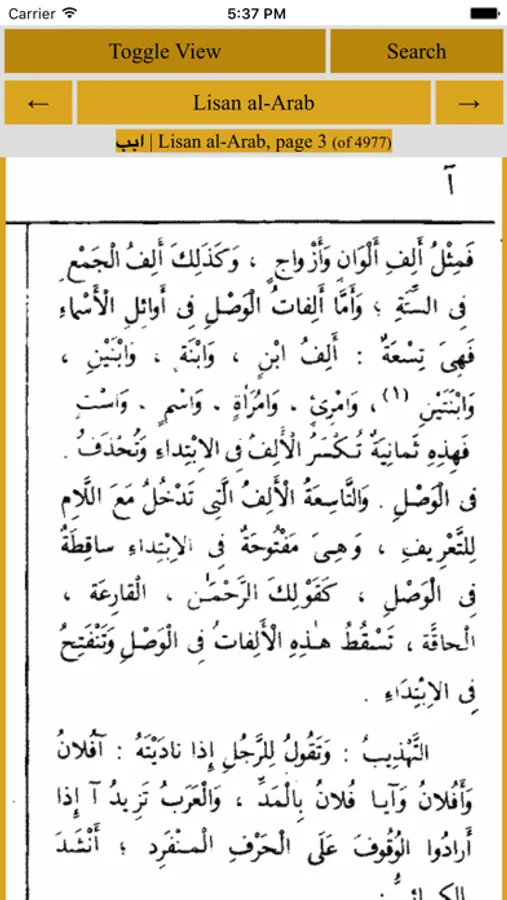 Carrier 5:37 PM
Toggle View Search
← Lisan al-Arab →
ابب | Lisan al-Arab, page 3 (of 4977)
آ
فَمِثْلُ أَلِفِ أَلْوَانٍ وَأَزْوَاجٍ ، وَكَذَلِكَ أَلِفُ الْجَمْعِ
فِى السِّتَّةِ ؛ وَأَمَّا أَلِفَاتُ الْوَصْلِ فِى أَوَائِلِ الْأَسْمَاءِ
فَهِىَ تِسْعَةٌ : أَلِفُ ابْنٍ ، وَابْنَةٍ ، وَابْنَيْنِ ،
وَابْنَتَيْنِ (١) ، وَامْرِئٍ ، وَامْرَأَةٍ ، وَاسْمٍ ، وَاسْتٍ
فَهٰذِهِ ثَمَانِيَةٌ تُكْسَرُ الْأَلِفُ فِى الِابْتِدَاءِ وَتُحْذَفُ
فِى الْوَصْلِ . وَالتَّاسِعَةُ الْأَلِفُ الَّتِى تَدْخُلُ مَعَ اللَّامِ
لِلتَّعْرِيفِ ، وَهِىَ مَفْتُوحَةٌ فِى الِابْتِدَاءِ سَاقِطَةٌ
فِى الْوَصْلِ ، كَقَوْلِكَ الرَّحْمٰن ، الْقَارِعَة ،
الْحَاقَّة ، تَسْقُطُ هٰذِهِ الْأَلِفَاتُ فِى الْوَصْلِ وَتَنْفَتِحُ
فِى الِابْتِدَاءِ .
التَّهْذِيبُ : وَتَقُولُ لِلرَّجُلِ إِذَا نَادَيْتَهُ : آفُلَانُ
وَأَفُلَانُ وَآيَا فُلَانُ بِالْمَدِّ ، وَالْعَرَبُ تَزِيدُ آ إِذَا
أَرَادُوا الْوُقُوفَ عَلَى الْحَرْفِ الْمُنْفَرِدِ ؛ أَنْشَدَ